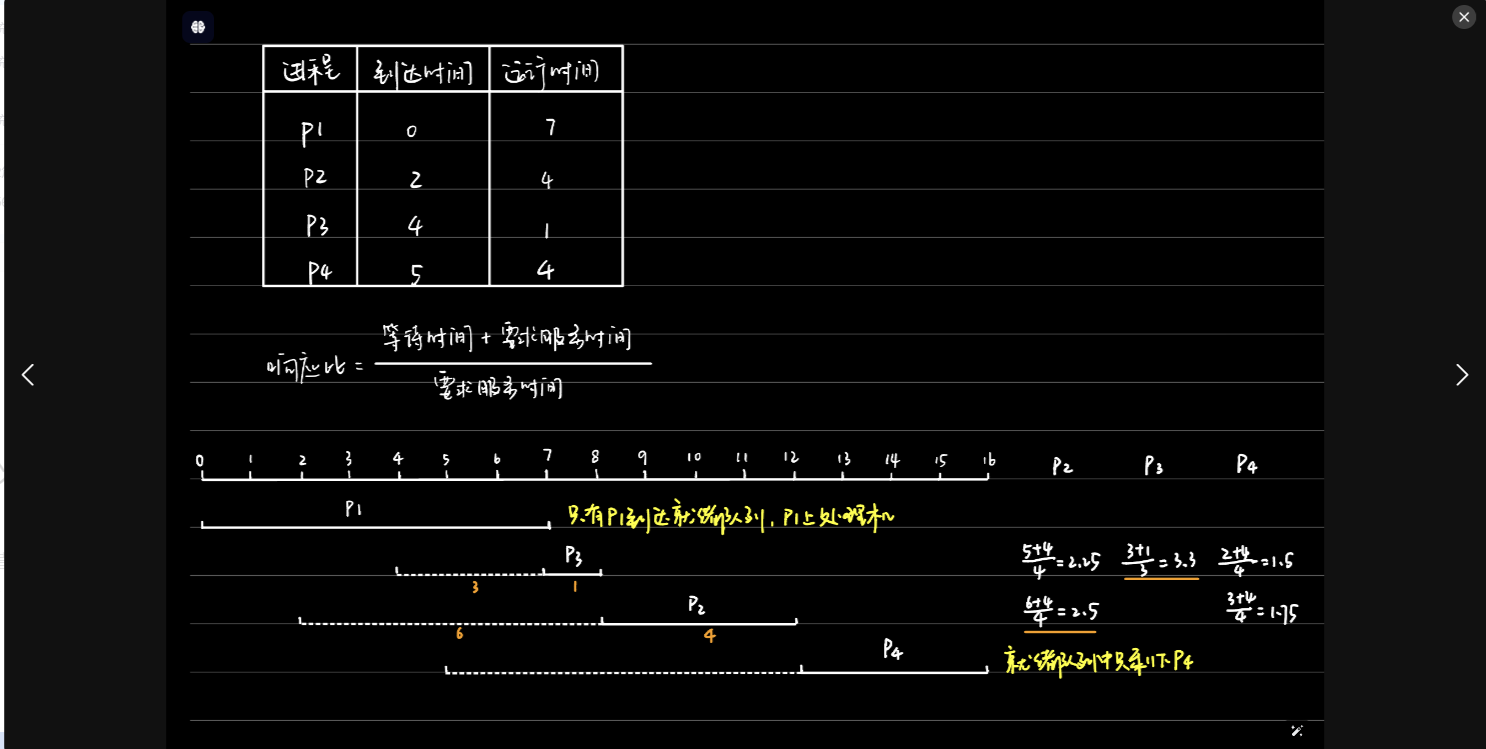 进程 到达时间 运行时间
P1 0 7
P2 2 4
P3 4 1
P4 5 4
响应比 = (等待时间 + 要求服务时间) / 要求服务时间
0 1 2 3 4 5 6 7 8 9 10 11 12 13 14 15 16 P2 P3 P4
P1 只有P1到达就绪队列，P1上处理机
P3
3 1
5+4/4 = 2.25 3+1/3 = 3.3 2+4/4 = 1.5
P2
6 4
6+4/4 = 2.5 3+4/4 = 1.75
P4 就绪队列中只剩下P4